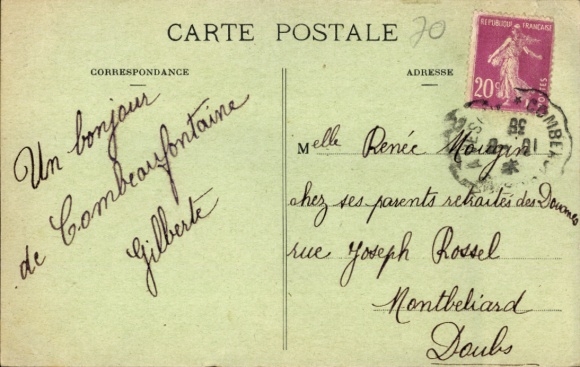 CARTE POSTALE
70
CORRESPONDANCE
ADRESSE
REPUBLIQUE FRANÇAISE
POSTES
20c
COMBEAU
38
Un bonjour
de Combeaufontaine
Gilberte
Melle Renée Mougin
chez ses parents retraités des Douanes
rue Joseph Rossel
Montbeliard
Doubs